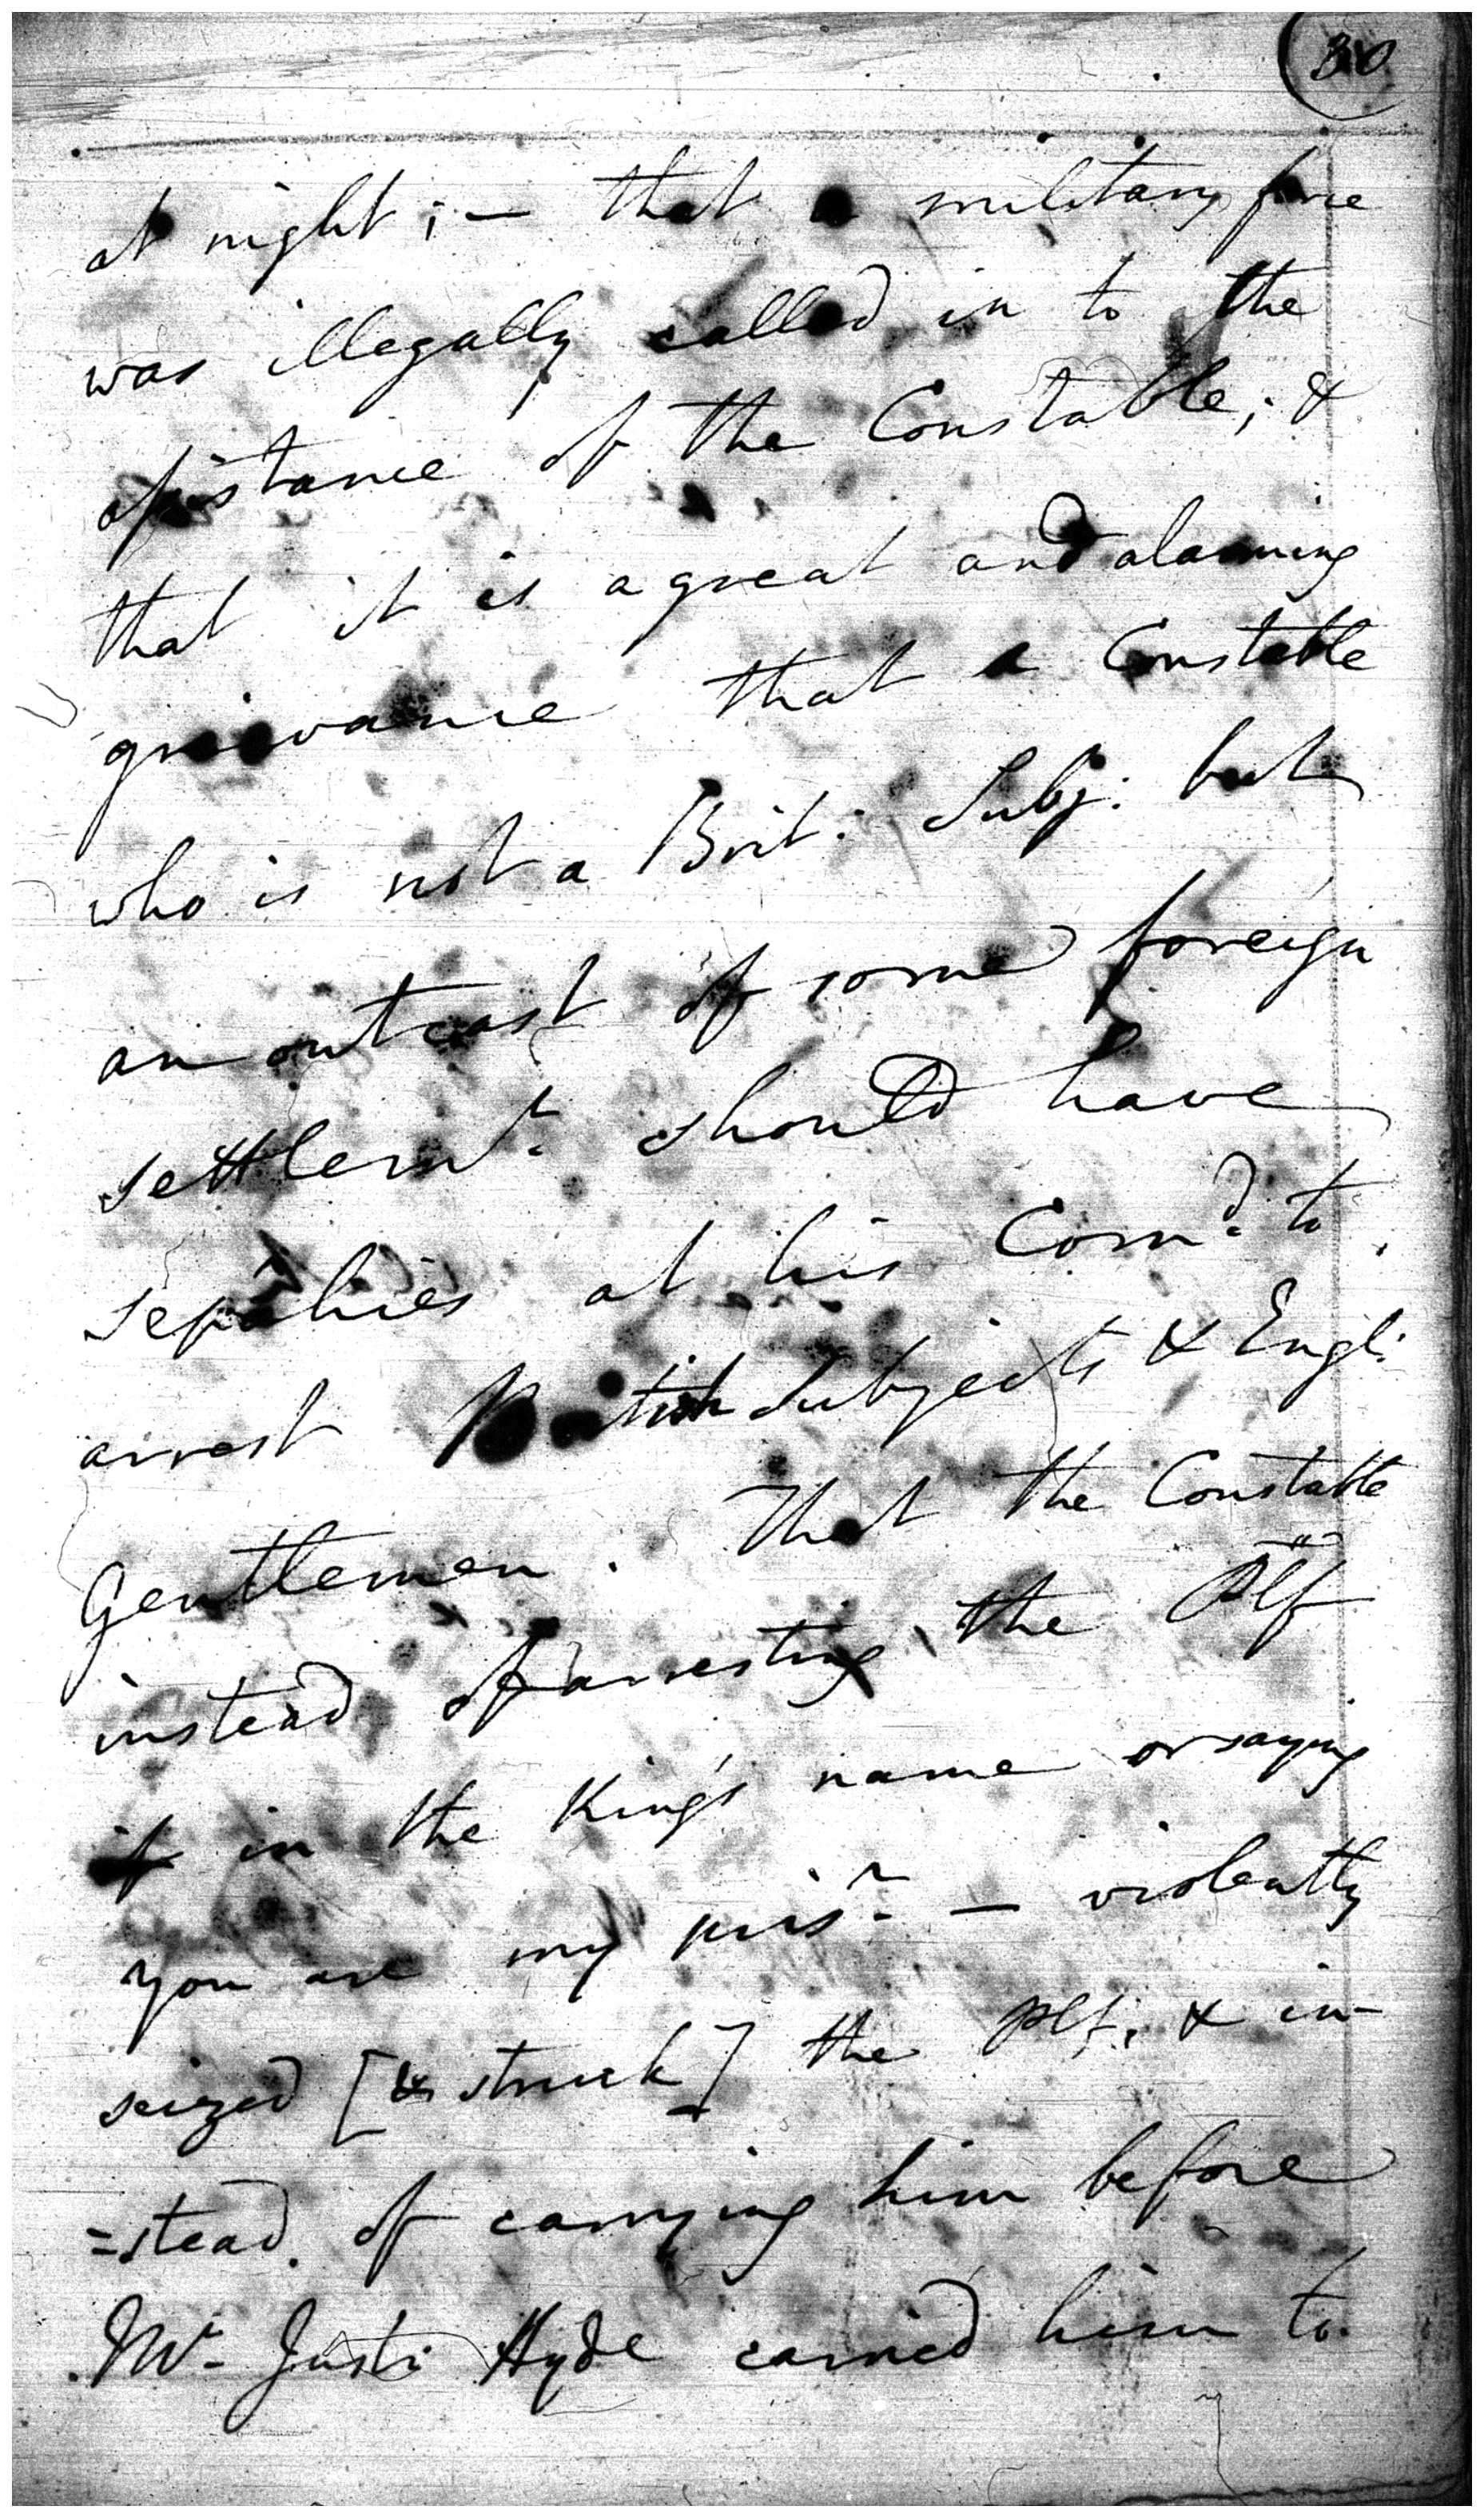 30
at night; — that a military force
was illegally called in to the
assistance of the Constable; &
that it is a great and alarming
grievance that a Constable
who is not a Brit: Subj: but
an outcast of some foreign
settlemt. should have
sepahies at his Comd. to
arrest British Subjects & Engl:
Gentlemen. That the Constable
instead of arresting the Plf
in the King's name or saying
you are my prisr. — violently
seized [& struck] the Plf. & in-
=stead of carrying him before
Mr. Justi Hyde carried him to